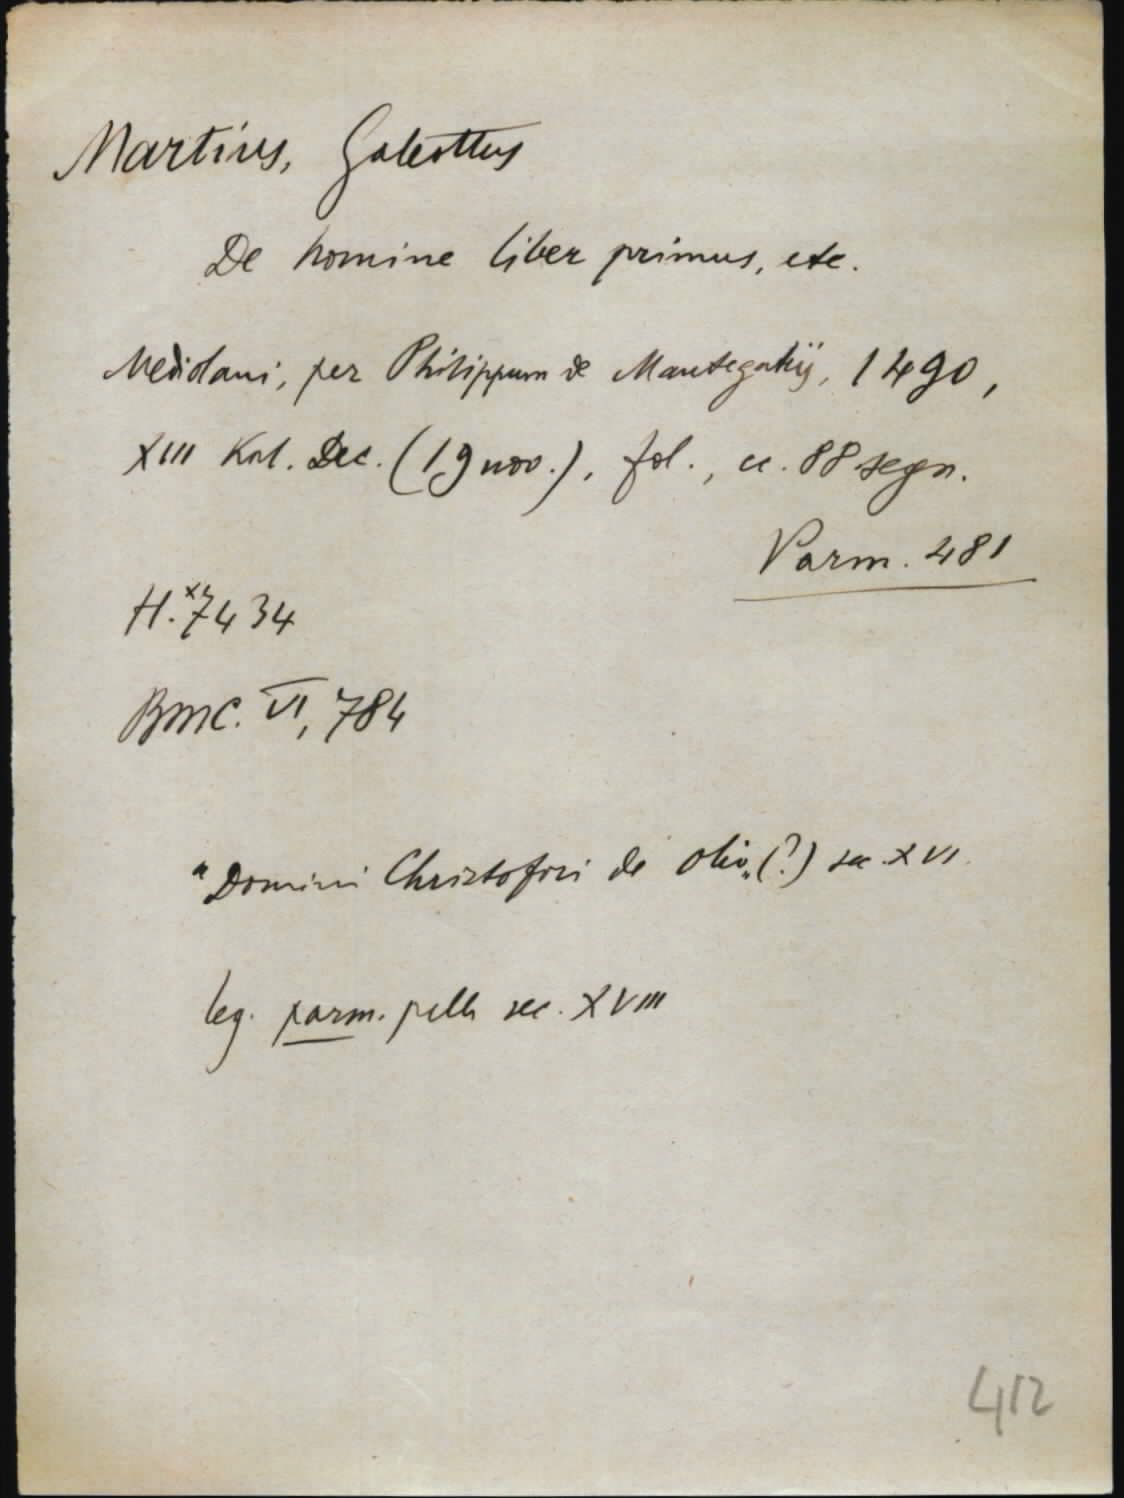 Martius, Galeottus
De homine liber primus, etc.
Mediolani, per Philippum de Mantegatijs, 1490,
XIII Kal. Dec. (19 nov.), fol., cc. 88 segn.
Parm. 481
H.* 7434
BMC. VI, 784
"Domini Christofori de Oliv„ (?) sec. XVI.
leg. parm. pelle sec. XVIII
412